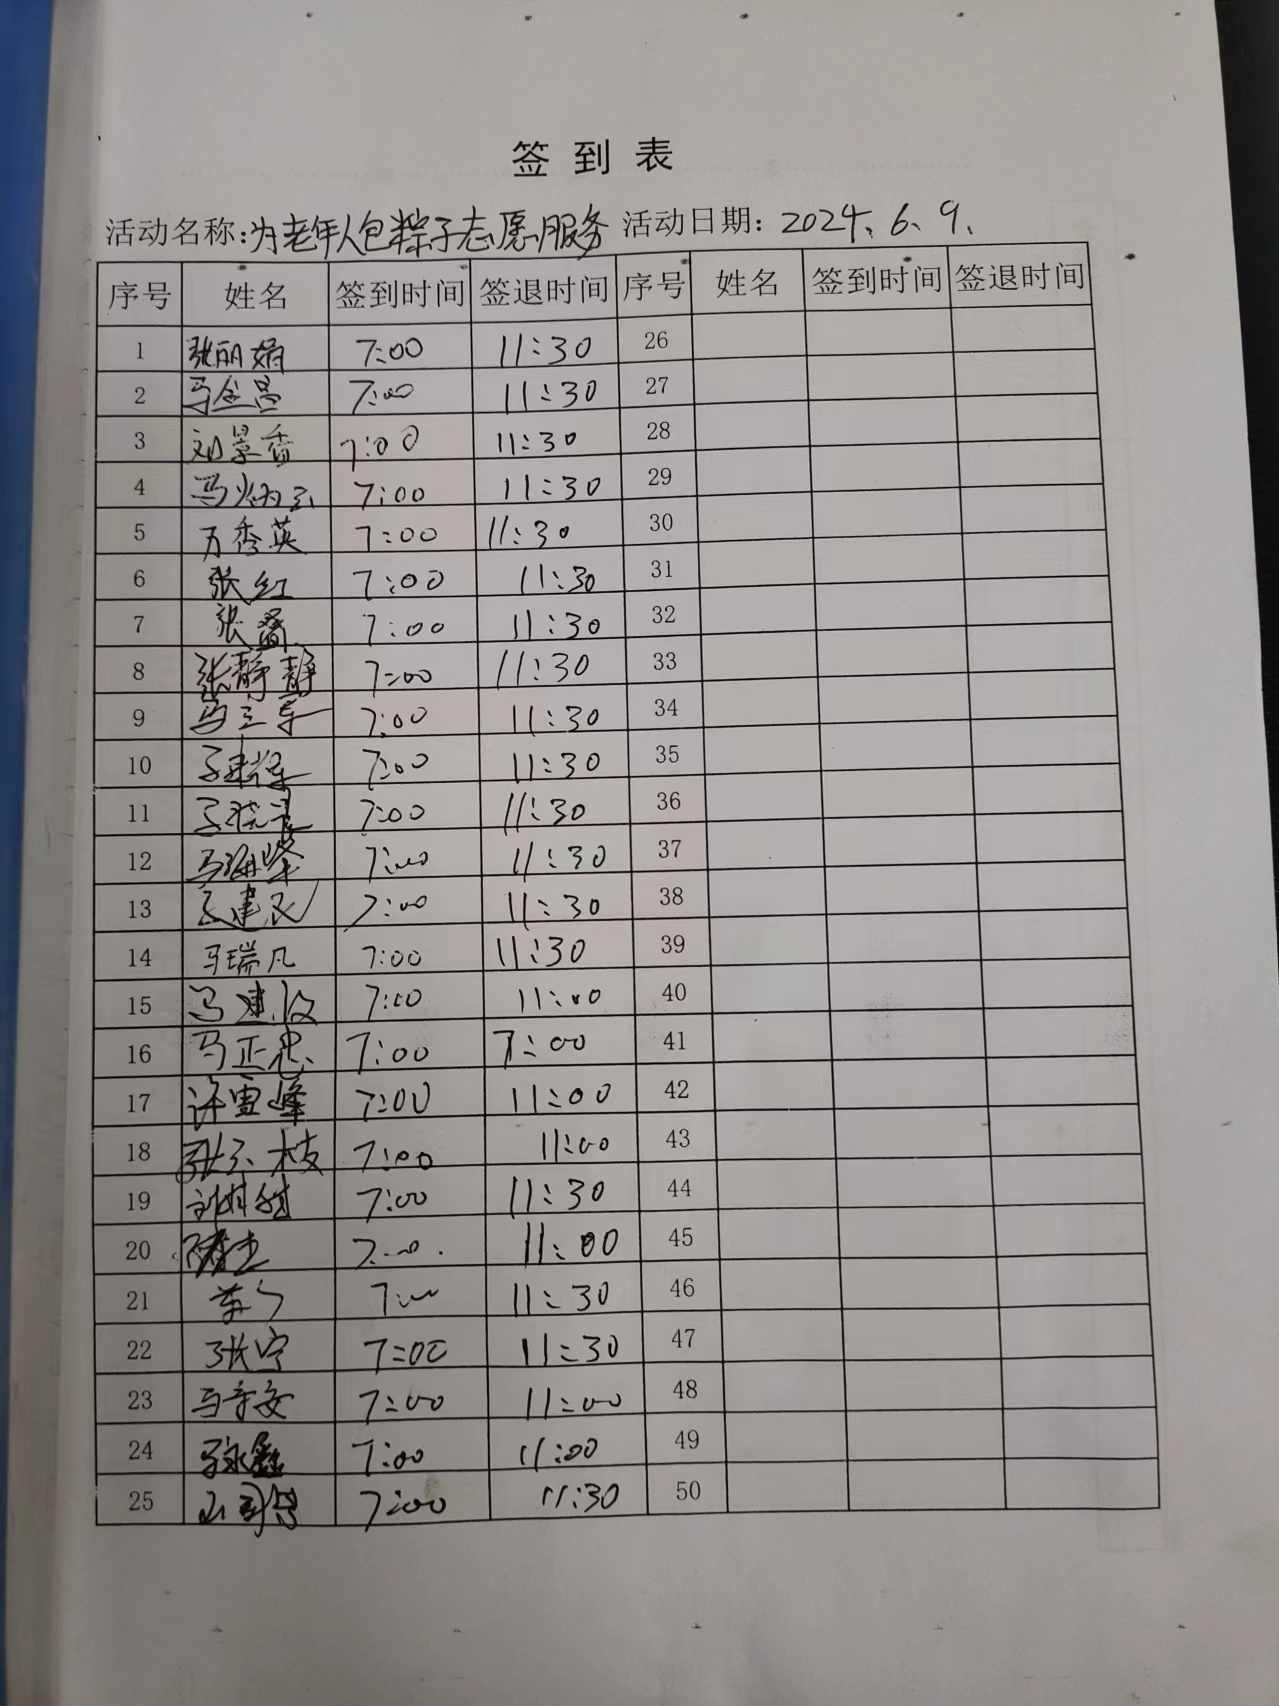 签到表
活动名称:为老年人包粽子志愿服务 活动日期: 2024.6.9.
序号 姓名 签到时间 签退时间 序号 姓名 签到时间 签退时间
1 张丽娟 7:00 11:30 26
2 马金昌 7:00 11:30 27
3 刘景香 7:00 11:30 28
4 马炳玉 7:00 11:30 29
5 万秀英 7:00 11:30 30
6 张红 7:00 11:30 31
7 张 7:00 11:30 32
8 张静静 7:00 11:30 33
9 马 7:00 11:30 34
10 7:00 11:30 35
11 7:00 11:30 36
12 马海峰 7:00 11:30 37
13 建民 7:00 11:30 38
14 马瑞凡 7:00 11:30 39
15 马建 7:00 11:00 40
16 马正忠 7:00 7:00 41
17 许雪峰 7:00 11:00 42
18 张玉枝 7:00 11:00 43
19 7:00 11:30 44
20 7:00 11:00 45
21 7:00 11:30 46
22 张宁 7:00 11:30 47
23 马守安 7:00 11:00 48
24 马永 7:00 11:00 49
25 7:00 11:30 50